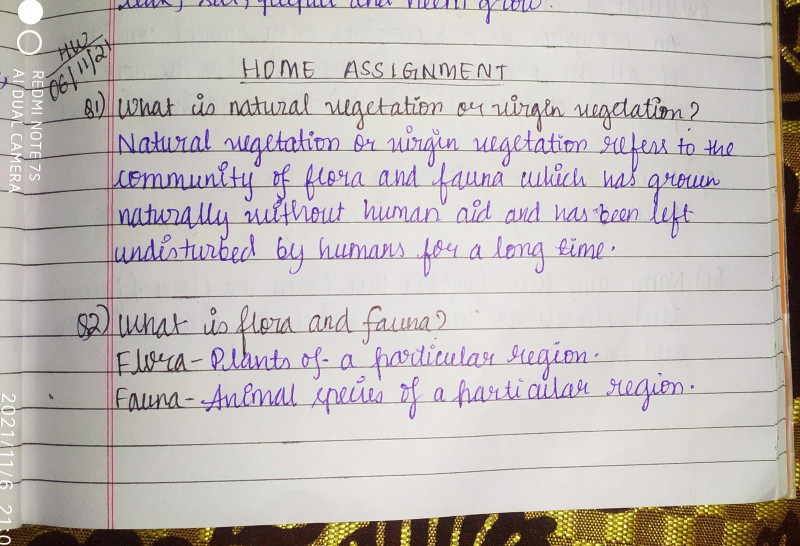 and neem grow.
HW
06/11/21
HOME ASSIGNMENT
Q1) What is natural vegetation or virgin vegetation?
Natural vegetation or virgin vegetation refers to the
community of flora and fauna which has grown
naturally without human aid and has been left
undisturbed by humans for a long time.
Q2) What is flora and fauna?
Flora - Plants of a particular region.
Fauna - Animal species of a particular region.
REDMI NOTE 7S
AI DUAL CAMERA
2021/11/6 21:0